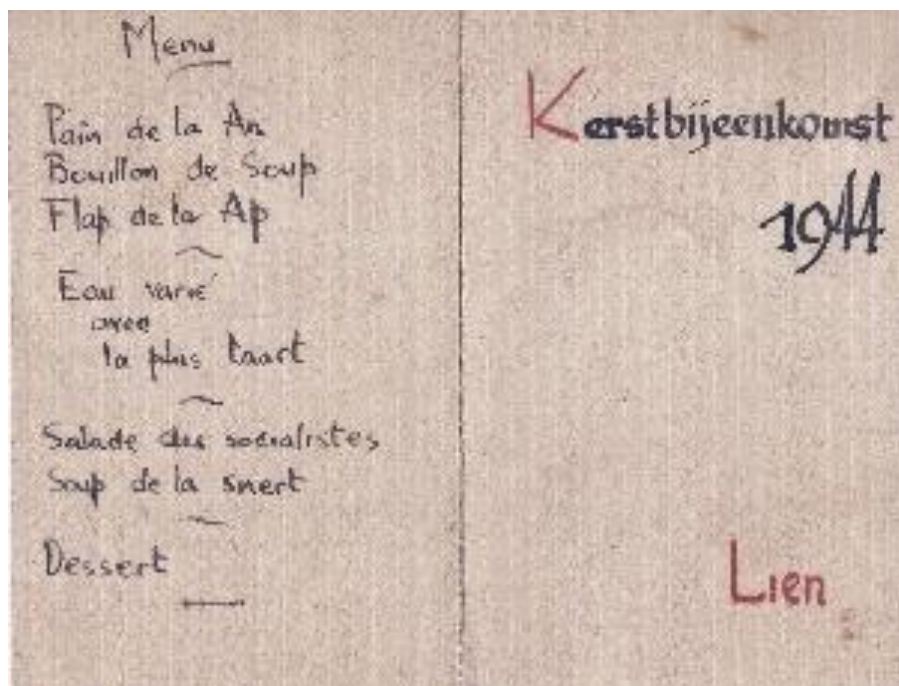 Menu
Pain de la An
Bouillon de Soup
Flap de la Ap
Eau varié
avec
la plus taart
Salade des socialistes
Soup de la snert
Dessert
Kerstbijeenkomst
1944
Lien